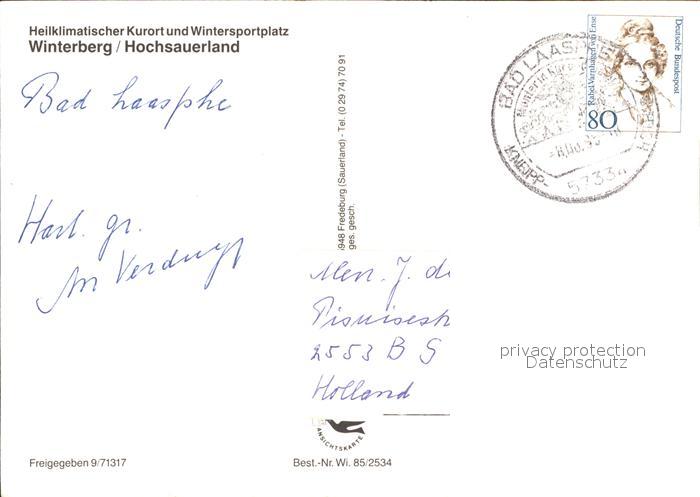 Heilklimatischer Kurort und Wintersportplatz
Winterberg / Hochsauerland
Bad Laasphe
Hart. gr.
Deutsche Bundespost
Rahel Varnhagen von Ense
80
BAD LAASPHE
KNEIPP-
5948 Fredeburg (Sauerland) - Tel. (0 29 74) 70 91
ges. gesch.
Men. J. de
2553 B G
Holland
privacy protection
Datenschutz
ANSICHTSKARTE
Freigegeben 9/71317
Best.-Nr. Wi. 85/2534